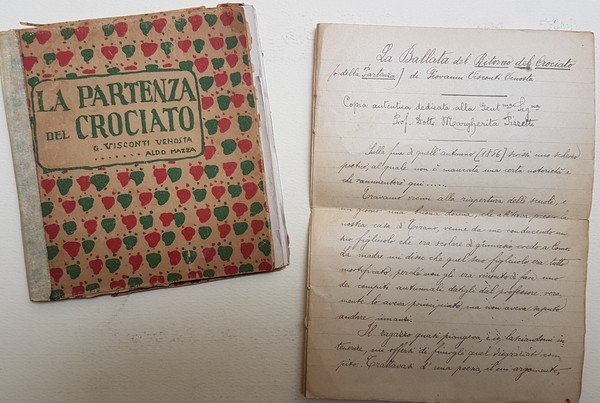 LA PARTENZA
DEL CROCIATO
G. VISCONTI VENOSTA
........ ALDO MAZZA
La Ballata del Ritorno del Crociato
(o della Partenza) di Giovanni Visconti Venosta
Copia autentica dedicata alla Gent.ma Sig.na
Prof. Dott. Margherita
Sulla fine di quell'autunno (1856) scrissi uno scherzo
poetico, al quale non è mancata una certa notorietà e
che rammenterò qui ......
Eravamo vicini alla riapertura delle scuole, e
un giorno una buona donna, che abitava presso la
nostra casa di Tirano, venne da me conducendo un
suo figliuolo che era scolare di ginnasio
La madre mi disse che quel suo figliuolo era tutto
mortificato, perchè non gli era riuscito di fare uno
de' compiti autunnali datigli dal professore: vera-
mente lo aveva principiato, ma non aveva saputo
andare innanzi.
Il ragazzo quasi piangeva, e io, lasciandomi in-
tenerire, mi offersi di finirgli quel disgraziato com-
pito. Trattavasi d'una poesia, il cui argomento,